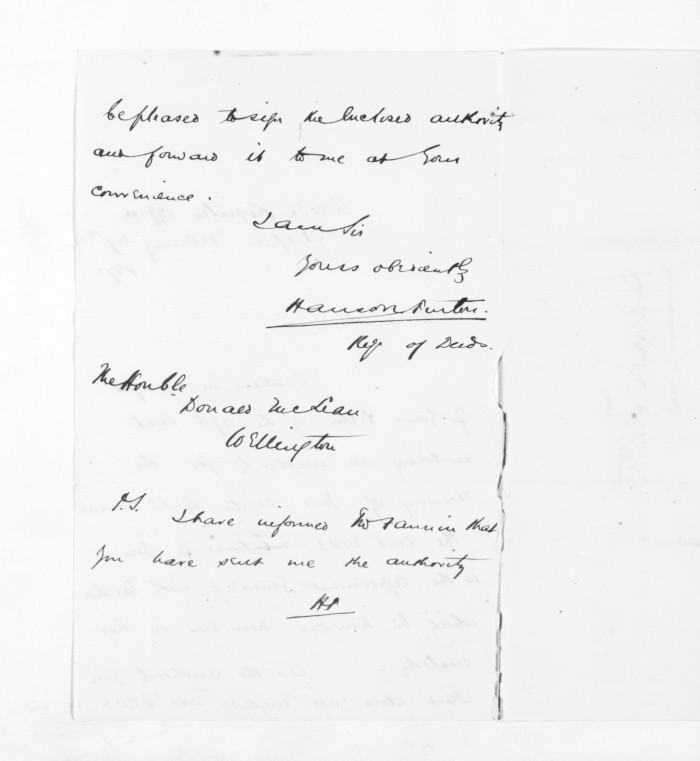 be pleased to sign the Inclosed authority
and forward it to me at your
convenience.
I am Sir
Yours obediently
Hanson Turton.
Regr of Deeds.
The Honble
Donald McLean
Wellington
P.S.
I have informed Mr Fannin that
you have sent me the authority
HT